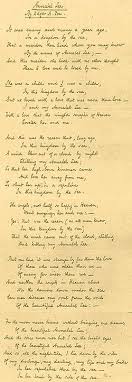 Annabel Lee.
By Edgar A. Poe.
It was many and many a year ago,
In a kingdom by the sea,
That a maiden there lived whom you may know
By the name of Annabel Lee; —
And this maiden she lived with no other thought
Than to love and be loved by me.
She was a child and I was a child,
In this kingdom by the sea,
But we loved with a love that was more than love —
I and my Annabel Lee —
With a love that the winged seraphs of Heaven
Coveted her and me.
And this was the reason that, long ago,
In this kingdom by the sea,
A wind blew out of a cloud by night
Chilling my Annabel Lee;
So that her high-born kinsmen came
And bore her away from me,
To shut her up, in a sepulchre
In this kingdom by the sea.
The angels, not half so happy in Heaven,
Went envying her and me;
Yes! that was the reason (as all men know,
In this kingdom by the sea)
That the wind came out of the cloud, chilling
And killing my Annabel Lee.
But our love it was stronger by far than the love
Of those who were older than we —
Of many far wiser than we —
And neither the angels in Heaven above
Nor the demons down under the sea
Can ever dissever my soul from the soul
Of the beautiful Annabel Lee: —
For the moon never beams without bringing me dreams
Of the beautiful Annabel Lee;
And the stars never rise but I see the bright eyes
Of the beautiful Annabel Lee;
And so, all the night-tide, I lie down by the side
Of my darling, my darling, my life and my bride
In her sepulchre there by the sea —
In her tomb by the side of the sea.